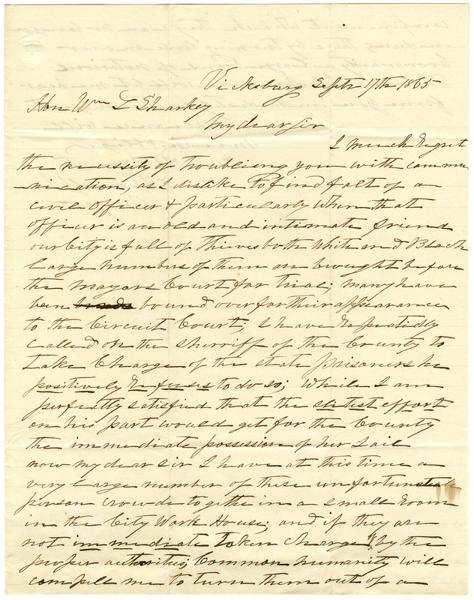 Vicksburg Septr 17th 1865
Hon Wm L Sharkey
My dear Sir
I much Regret
the necessity of troubling you with commu
nication, as I dislike to find falt of a
civil officer & particularly when that
officer is an old and intimate friend
our City is full of Theives both White and Black
large numbers of them are brought before
the mayors Court for trial; many have
been bound over for their appearance
to the Circuit Court; I have Repeatidly
called on the Sherriff of the County to
take Charge of the state prisoners he
positively Refuses to do so; While I am
perfectly satisfied that the slitest effort
on his part would get for the County
the immediate possession of her Jail
now my dear Sir I have at this time a
very large number of these unfortunate
person crowded togethe in a small Room
in the City Work House; and if they are
not immediate taken charge by the
proper authorities, Common humanity will
compell me to turn them out of a